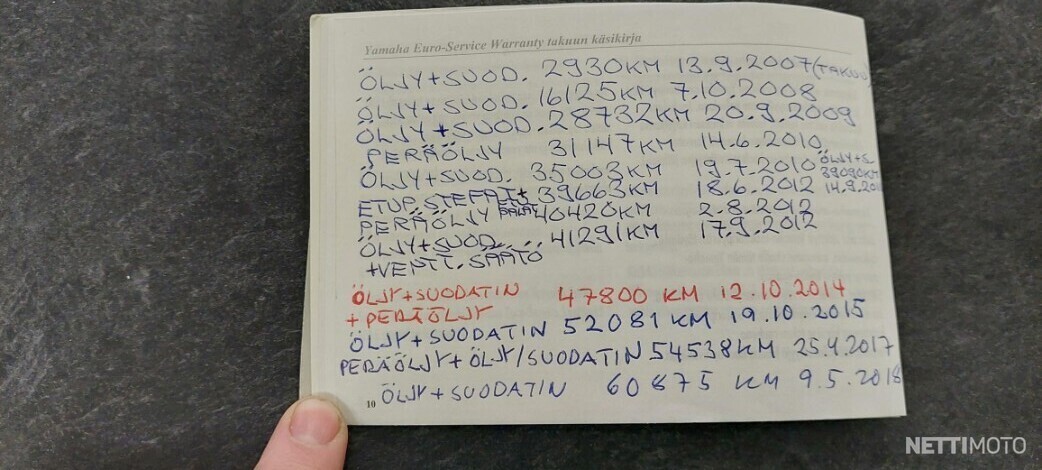 Yamaha Euro-Service Warranty takuun käsikirja
ÖLJY+SUOD. 2930KM 13.9.2007 (TAKUU)
ÖLJY+SUOD. 16125KM 7.10.2008
ÖLJY+SUOD. 28732KM 20.9.2009
PERÄÖLJY 31147KM 14.6.2010
ÖLJY+SUOD. 35003KM 19.7.2010
ÖLJY+S
39090KM
14.9.201
ETUP. STEFAT+ 39663KM 18.6.2012
PERÄÖLJY PALAT 40420KM 2.8.2012
ÖLJY+SUOD. 41291KM 17.9.2012
+VENTT. SÄÄTÖ
ÖLJY+SUODATIN 47800 KM 12.10.2014
+ PERÄÖLJY
ÖLJY+SUODATIN 52081 KM 19.10.2015
PERÄÖLJY+ÖLJY/SUODATIN 54538KM 25.4.2017
10 ÖLJY+SUODATIN 60875 KM 9.5.2018
NETTIMOTO